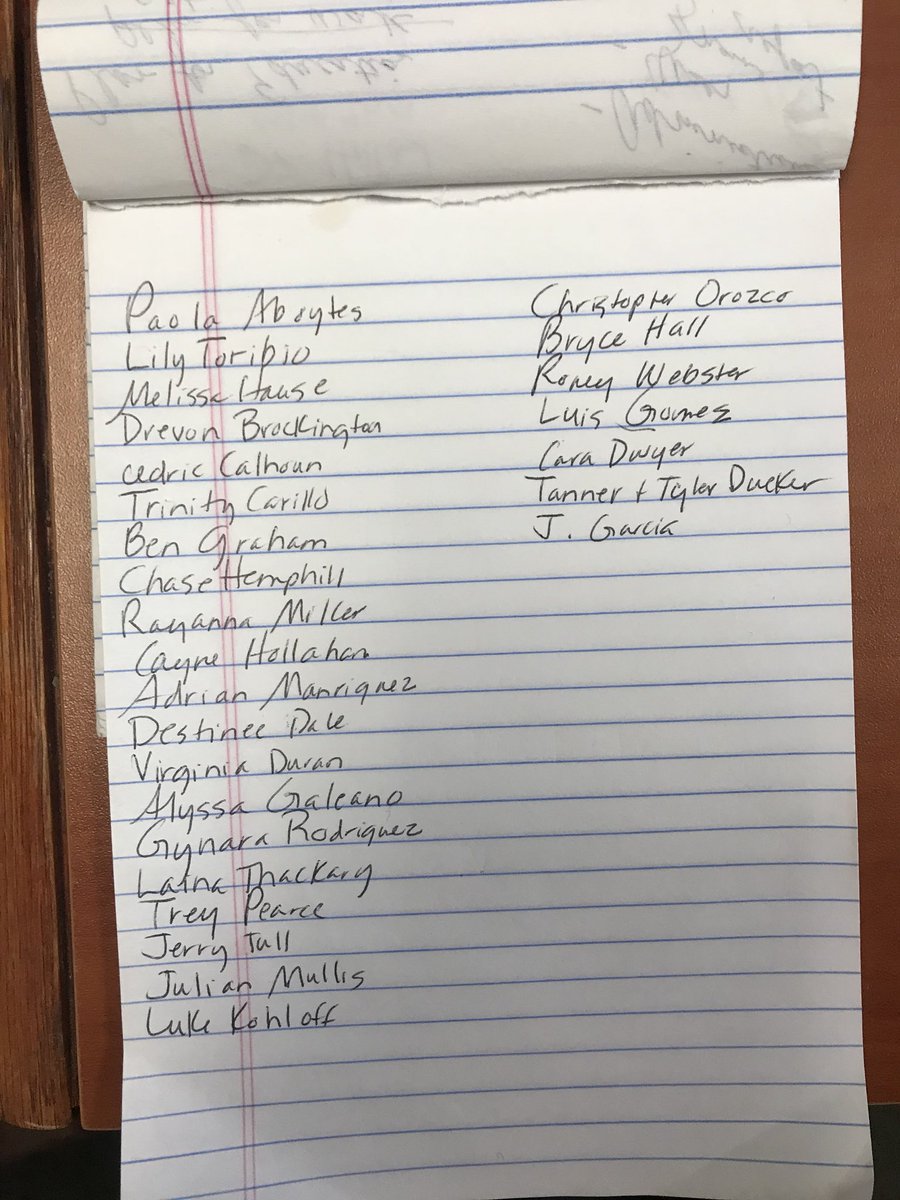 Paola Aboytes
Lily Toribio
Melissa Hause
Drevon Brockington
cedric Calhoun
Trinity Carillo
Ben Graham
Chase Hemphill
Rayanna Miller
Cayne Hollahan
Adrian Manriquez
Destinee Dale
Virginia Duran
Alyssa Galeano
Gynara Rodriquez
Thackary
Trey Pearce
Jerry Tull
Julian Mullis
Luke Kohloff
Christopher Orozco
Bryce Hall
Roney Webster
Luis Gomez
Cara Dwyer
Tanner + Tyler Ducker
J. Garcia